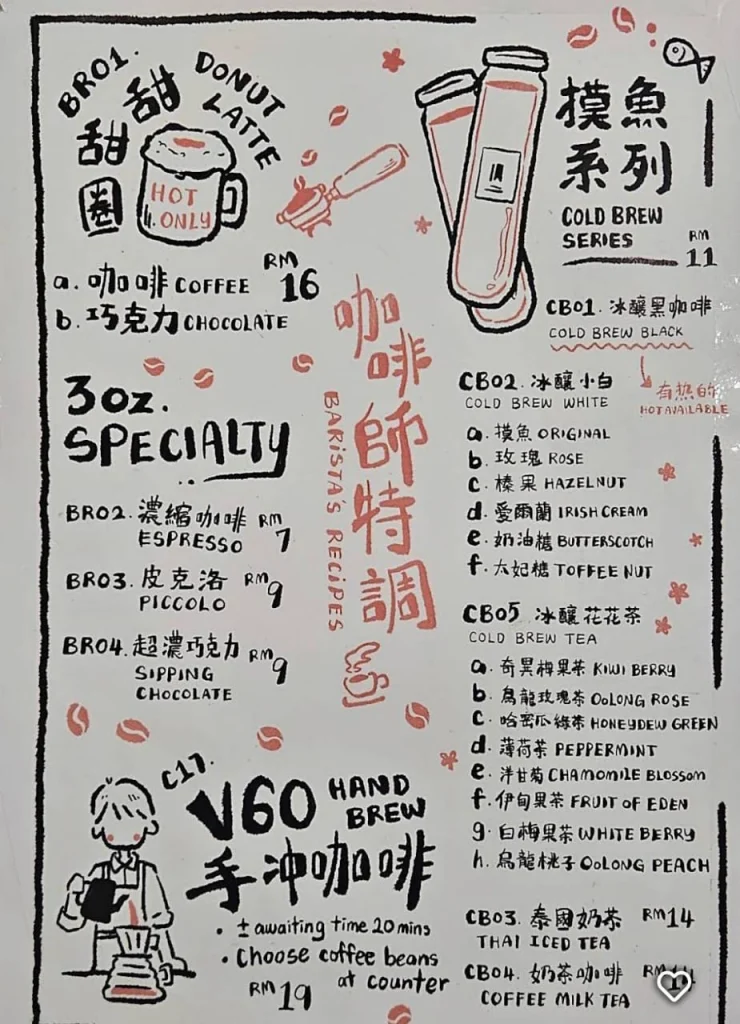 BR01.
甜甜圈
DONUT
LATTE
HOT
ONLY
a. 咖啡 COFFEE
b. 巧克力 CHOCOLATE
RM
16
3oz.
SPECIALTY
BR02. 濃縮咖啡 RM
ESPRESSO 7
BR03. 皮克洛 RM9
PICCOLO
BR04. 超濃巧克力 RM9
SIPPING
CHOCOLATE
咖啡師特調
BARISTA'S RECIPES
C17.
V60 HAND
BREW
手沖咖啡
• ± awaiting time 20 mins
• Choose coffee beans
at counter
RM 19
摸魚
系列
COLD BREW
SERIES
RM
11
CB01. 冰釀黑咖啡
COLD BREW BLACK
有熱的
HOT AVAILABLE
CB02. 冰釀小白
COLD BREW WHITE
a. 摸魚 ORIGINAL
b. 玫瑰 ROSE
c. 榛果 HAZELNUT
d. 愛爾蘭 IRISH CREAM
e. 奶油糖 BUTTERSCOTCH
f. 太妃糖 TOFFEE NUT
CB05. 冰釀花花茶
COLD BREW TEA
a. 奇異梅果茶 KIWI BERRY
b. 烏龍玫瑰茶 OOLONG ROSE
c. 哈密瓜綠茶 HONEYDEW GREEN
d. 薄荷茶 PEPPERMINT
e. 洋甘菊 CHAMOMILE BLOSSOM
f. 伊甸果茶 FRUIT OF EDEN
g. 白梅果茶 WHITE BERRY
h. 烏龍桃子 OOLONG PEACH
CB03. 泰國奶茶 RM14
THAI ICED TEA
CB04. 奶茶咖啡 RM
COFFEE MILK TEA